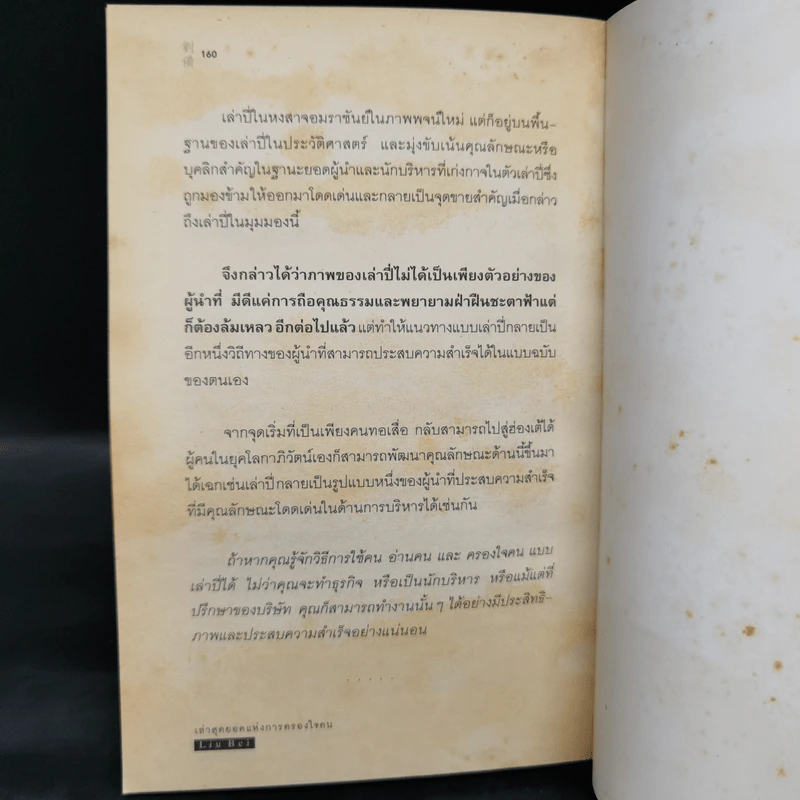 劉備
160
เล่าปี่ในหงสาจอมราชันย์ในภาพพจน์ใหม่ แต่ก็อยู่บนพื้น-
ฐานของเล่าปี่ในประวัติศาสตร์ และมุ่งขับเน้นคุณลักษณะหรือ
บุคลิกสำคัญในฐานะยอดผู้นำและนักบริหารที่เก่งกาจในตัวเล่าปี่ซึ่ง
ถูกมองข้ามให้ออกมาโดดเด่นและกลายเป็นจุดขายสำคัญเมื่อกล่าว
ถึงเล่าปี่ในมุมมองนี้
จึงกล่าวได้ว่าภาพของเล่าปี่ไม่ได้เป็นเพียงตัวอย่างของ
ผู้นำที่ มีดีแค่การถือคุณธรรมและพยายามฝ่าฝืนชะตาฟ้าแต่
ก็ต้องล้มเหลว อีกต่อไปแล้ว แต่ทำให้แนวทางแบบเล่าปี่กลายเป็น
อีกหนึ่งวิถีทางของผู้นำที่สามารถประสบความสำเร็จได้ในแบบฉบับ
ของตนเอง
จากจุดเริ่มที่เป็นเพียงคนทอเสื่อ กลับสามารถไปสู่ฮ่องเต้ได้
ผู้คนในยุคโลกาภิวัตน์เองก็สามารถพัฒนาคุณลักษณะด้านนี้ขึ้นมา
ได้เฉกเช่นเล่าปี่ กลายเป็นรูปแบบหนึ่งของผู้นำที่ประสบความสำเร็จ
ที่มีคุณลักษณะโดดเด่นในด้านการบริหารได้เช่นกัน
ถ้าหากคุณรู้จักวิธีการใช้คน อ่านคน และ ครองใจคน แบบ
เล่าปี่ได้ ไม่ว่าคุณจะทำธุรกิจ หรือเป็นนักบริหาร หรือแม้แต่ที่
ปรึกษาของบริษัท คุณก็สามารถทำงานนั้น ๆ ได้อย่างมีประสิทธิ-
ภาพและประสบความสำเร็จอย่างแน่นอน
.....
เล่าสุดยอดแห่งการครองใจคน
Liu Bei